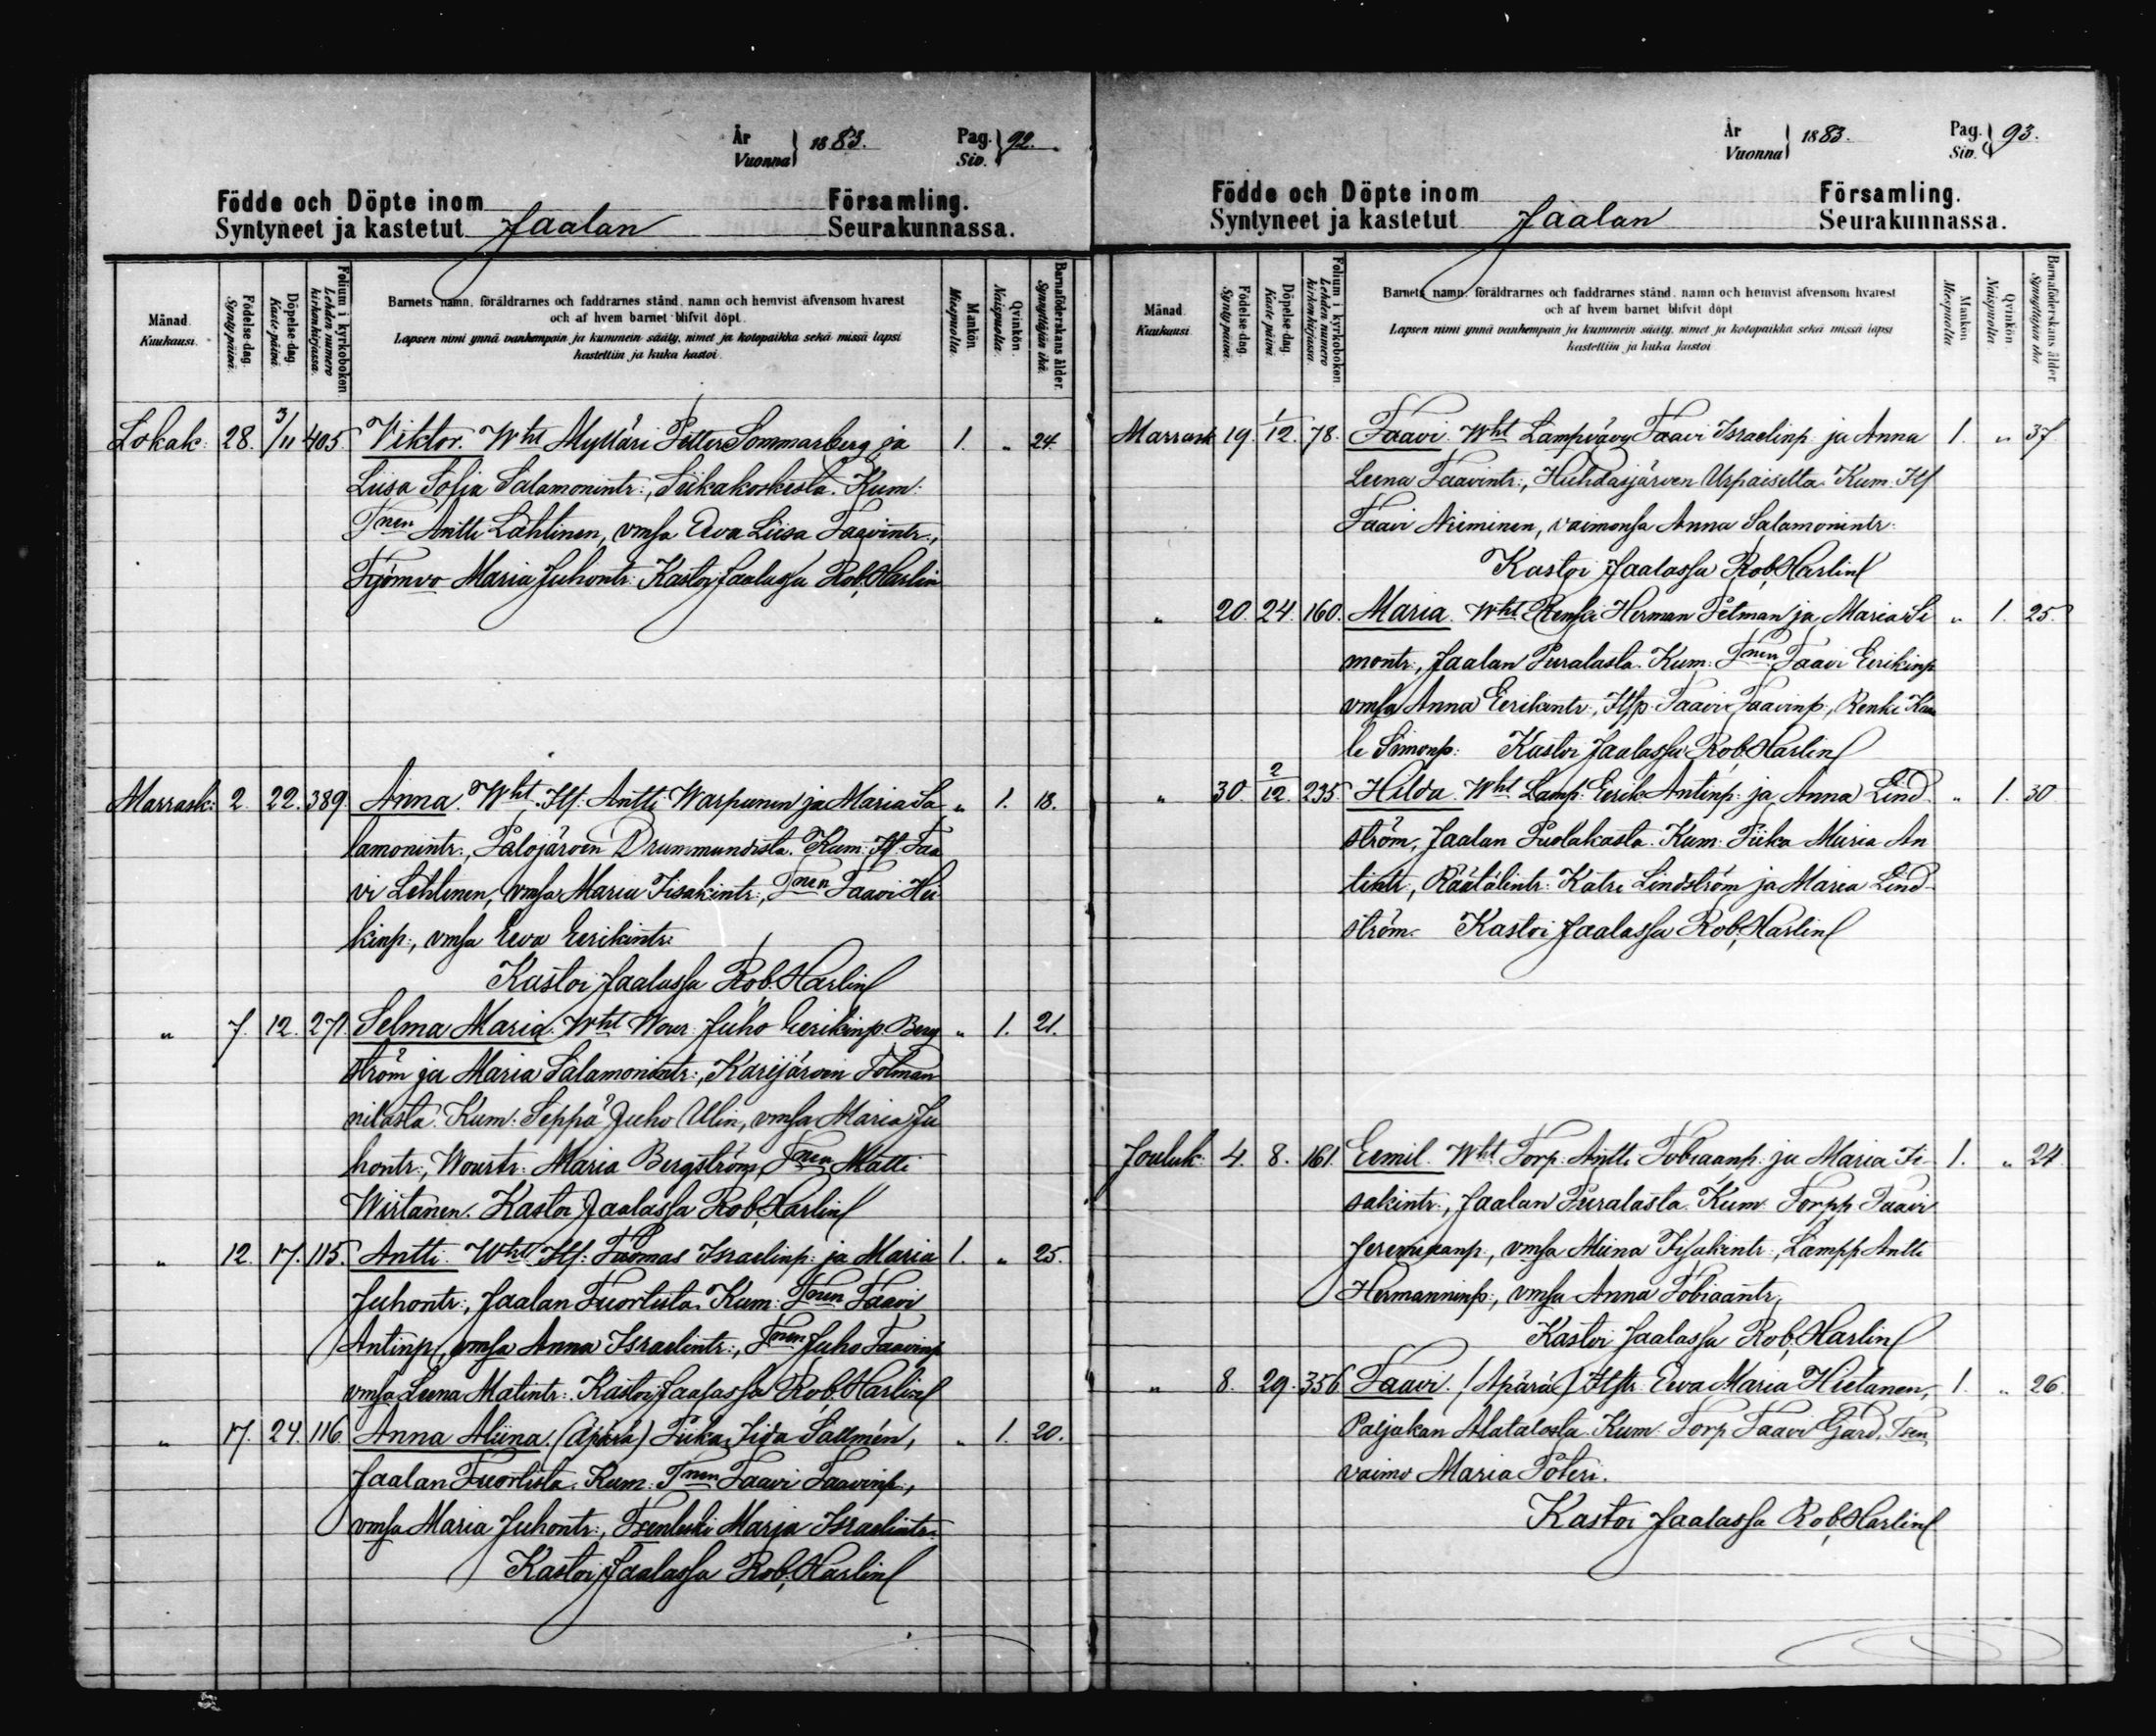 År
Vuonna } 1883. Pag.
Siv. } 92.
Födde och Döpte inom Församling.
Syntyneet ja kastetut Jaalan Seurakunnassa.
Månad.
Kuukausi.
Födelse-dag.
Synty päivä.
Döpelse-dag.
Kaste päivä.
Folium i kyrkoboken
Lehden numero
kirkonkirjassa.
Barnets namn, föräldrarnes och faddrarnes stånd, namn och hemvist äfvensom hvarest
och af hvem barnet blifvit döpt.
Lapsen nimi ynnä vanhempain ja kummein sääty, nimet ja kotopaikka sekä missä lapsi
kastettiin ja kuka kastoi.
Mankön.
Miespuolia.
Qvinkön.
Naispuolia.
Barnaföderskans ålder.
Synnyttäjän ikä.
Lokak: 28. 3/11 405. Viktor. Wht Mylläri Petter Sommarberg ja 1. „ 24.
Liisa Sofia Salamonintr:, Siikakoskista. Kum:
Tnen Antti Lahtinen, vmsa Eva Liisa Taavintr.,
Työmvo Maria Juhontr: Kastoi Jaalassa Rob. Harlin
Marrask: 2. 22. 389. Anna. Wht. Itl: Antti Warpunen ja Maria Sa „ 1. 18.
lamonintr:, Palojärven Drummundista. Kum: It Taa
vi Lehtinen, vmsa Maria Iisakintr:, Tnen Taavi Hei
kinp:, vmsa Eeva Eerikintr:
Kastoi Jaalassa Rob. Harlin
„ 7. 12. 271. Selma Maria. Wht Wour Juho Eerikinp. Berg „ 1. 21.
ström ja Maria Salamonintr:, Karijärven Tolman
nilasta. Kum: Seppä Juho Ulin, vmsa Maria Ju
hontr:, Wourtr: Maria Bergström, Tnen Matti
Wirtanen. Kastoi Jaalassa Rob. Harlin
„ 12. 17. 115. Antti. Wht Itl: Tuomas Israelinp: ja Maria 1. „ 25.
Juhontr:, Jaalan Tuortista. Kum: Tnen Taavi
Antinp, vmsa Anna Israelintr:, Tnen Juho Taavinp
vmsa Leena Matintr: Kastoi Jaalassa Rob. Harlin
„ 17. 24. 116. Anna Miina. (Äpärä) Piika Iida Sallmén, „ 1. 20.
Jaalan Tuortista. Kum: Tnen Taavi Taavinp:,
vmsa Maria Juhontr:, Tsenleski Marja Israelintr:
Kastoi Jaalassa Rob. Harlin
År
Vuonna } 1883. Pag.
Siv. } 93.
Födde och Döpte inom Församling.
Syntyneet ja kastetut Jaalan Seurakunnassa.
Månad.
Kuukausi.
Födelse-dag.
Synty päivä.
Döpelse-dag.
Kaste päivä.
Folium i kyrkoboken
Lehden numero
kirkonkirjassa.
Barnets namn, föräldrarnes och faddrarnes stånd, namn och hemvist äfvensom hvarest
och af hvem barnet blifvit döpt
Lapsen nimi ynnä vanhempain ja kummein sääty, nimet ja kotopaikka sekä missä lapsi
kastettiin ja kuka kastoi
Mankön
Miespuolia
Qvinkön
Naispuolia.
Barnaföderskans ålder.
Synnyttäjän ikä
Marrask 19. 1/12. 78. Taavi. Wht Lampvävy Taavi Israelinp. ja Anna 1. „ 37
Leena Taavintr:, Huhdasjärven Urpaiselta. Kum. Itl
Taavi Nieminen, vaimonsa Anna Salamonintr.
Kastoi Jaalassa Rob. Harlin
„ 20. 24. 160. Maria. Wht Renki Herman Petman ja Maria Si „ 1. 25.
montr:, Jaalan Puralasta. Kum: Tnen Taavi Eerikinp
vmsa Anna Eerikintr:, Itlp. Taavi Taavinp, Renki Kaa
le Simonp: Kastoi Jaalassa Rob. Harlin
„ 30. 2/12. 235. Hilda. Wht Lamp: Eerik Antinp: ja Anna Lind „ 1. 30
ström, Jaalan Puolakasta. Kum: Piika Maria An
tintr:, Räätälintr: Katri Lindström ja Maria Lind
ström. Kastoi Jaalassa Rob. Harlin
Jouluk: 4. 8. 161. Eemil. Wht Torp: Antti Tobiaanp: ja Maria Ii- 1. „ 24
sakintr:, Jaalan Puralasta. Kum: Torpp Taavi
Jeremiaanp:, vmsa Miina Iisakintr:, Lampp Antti
Hermanninp:, vmsa Anna Tobiaantr,
Kastoi Jaalassa Rob. Harlin
„ 8. 29. 356. Taavi. (Äpärä) Itltr. Eeva Maria Hietanen, 1. „ 26.
Paljakan Alatalosta. Kum: Torp Taavi Gård, Tsen
vaimo Maria Poteri.
Kastoi Jaalassa Rob. Harlin